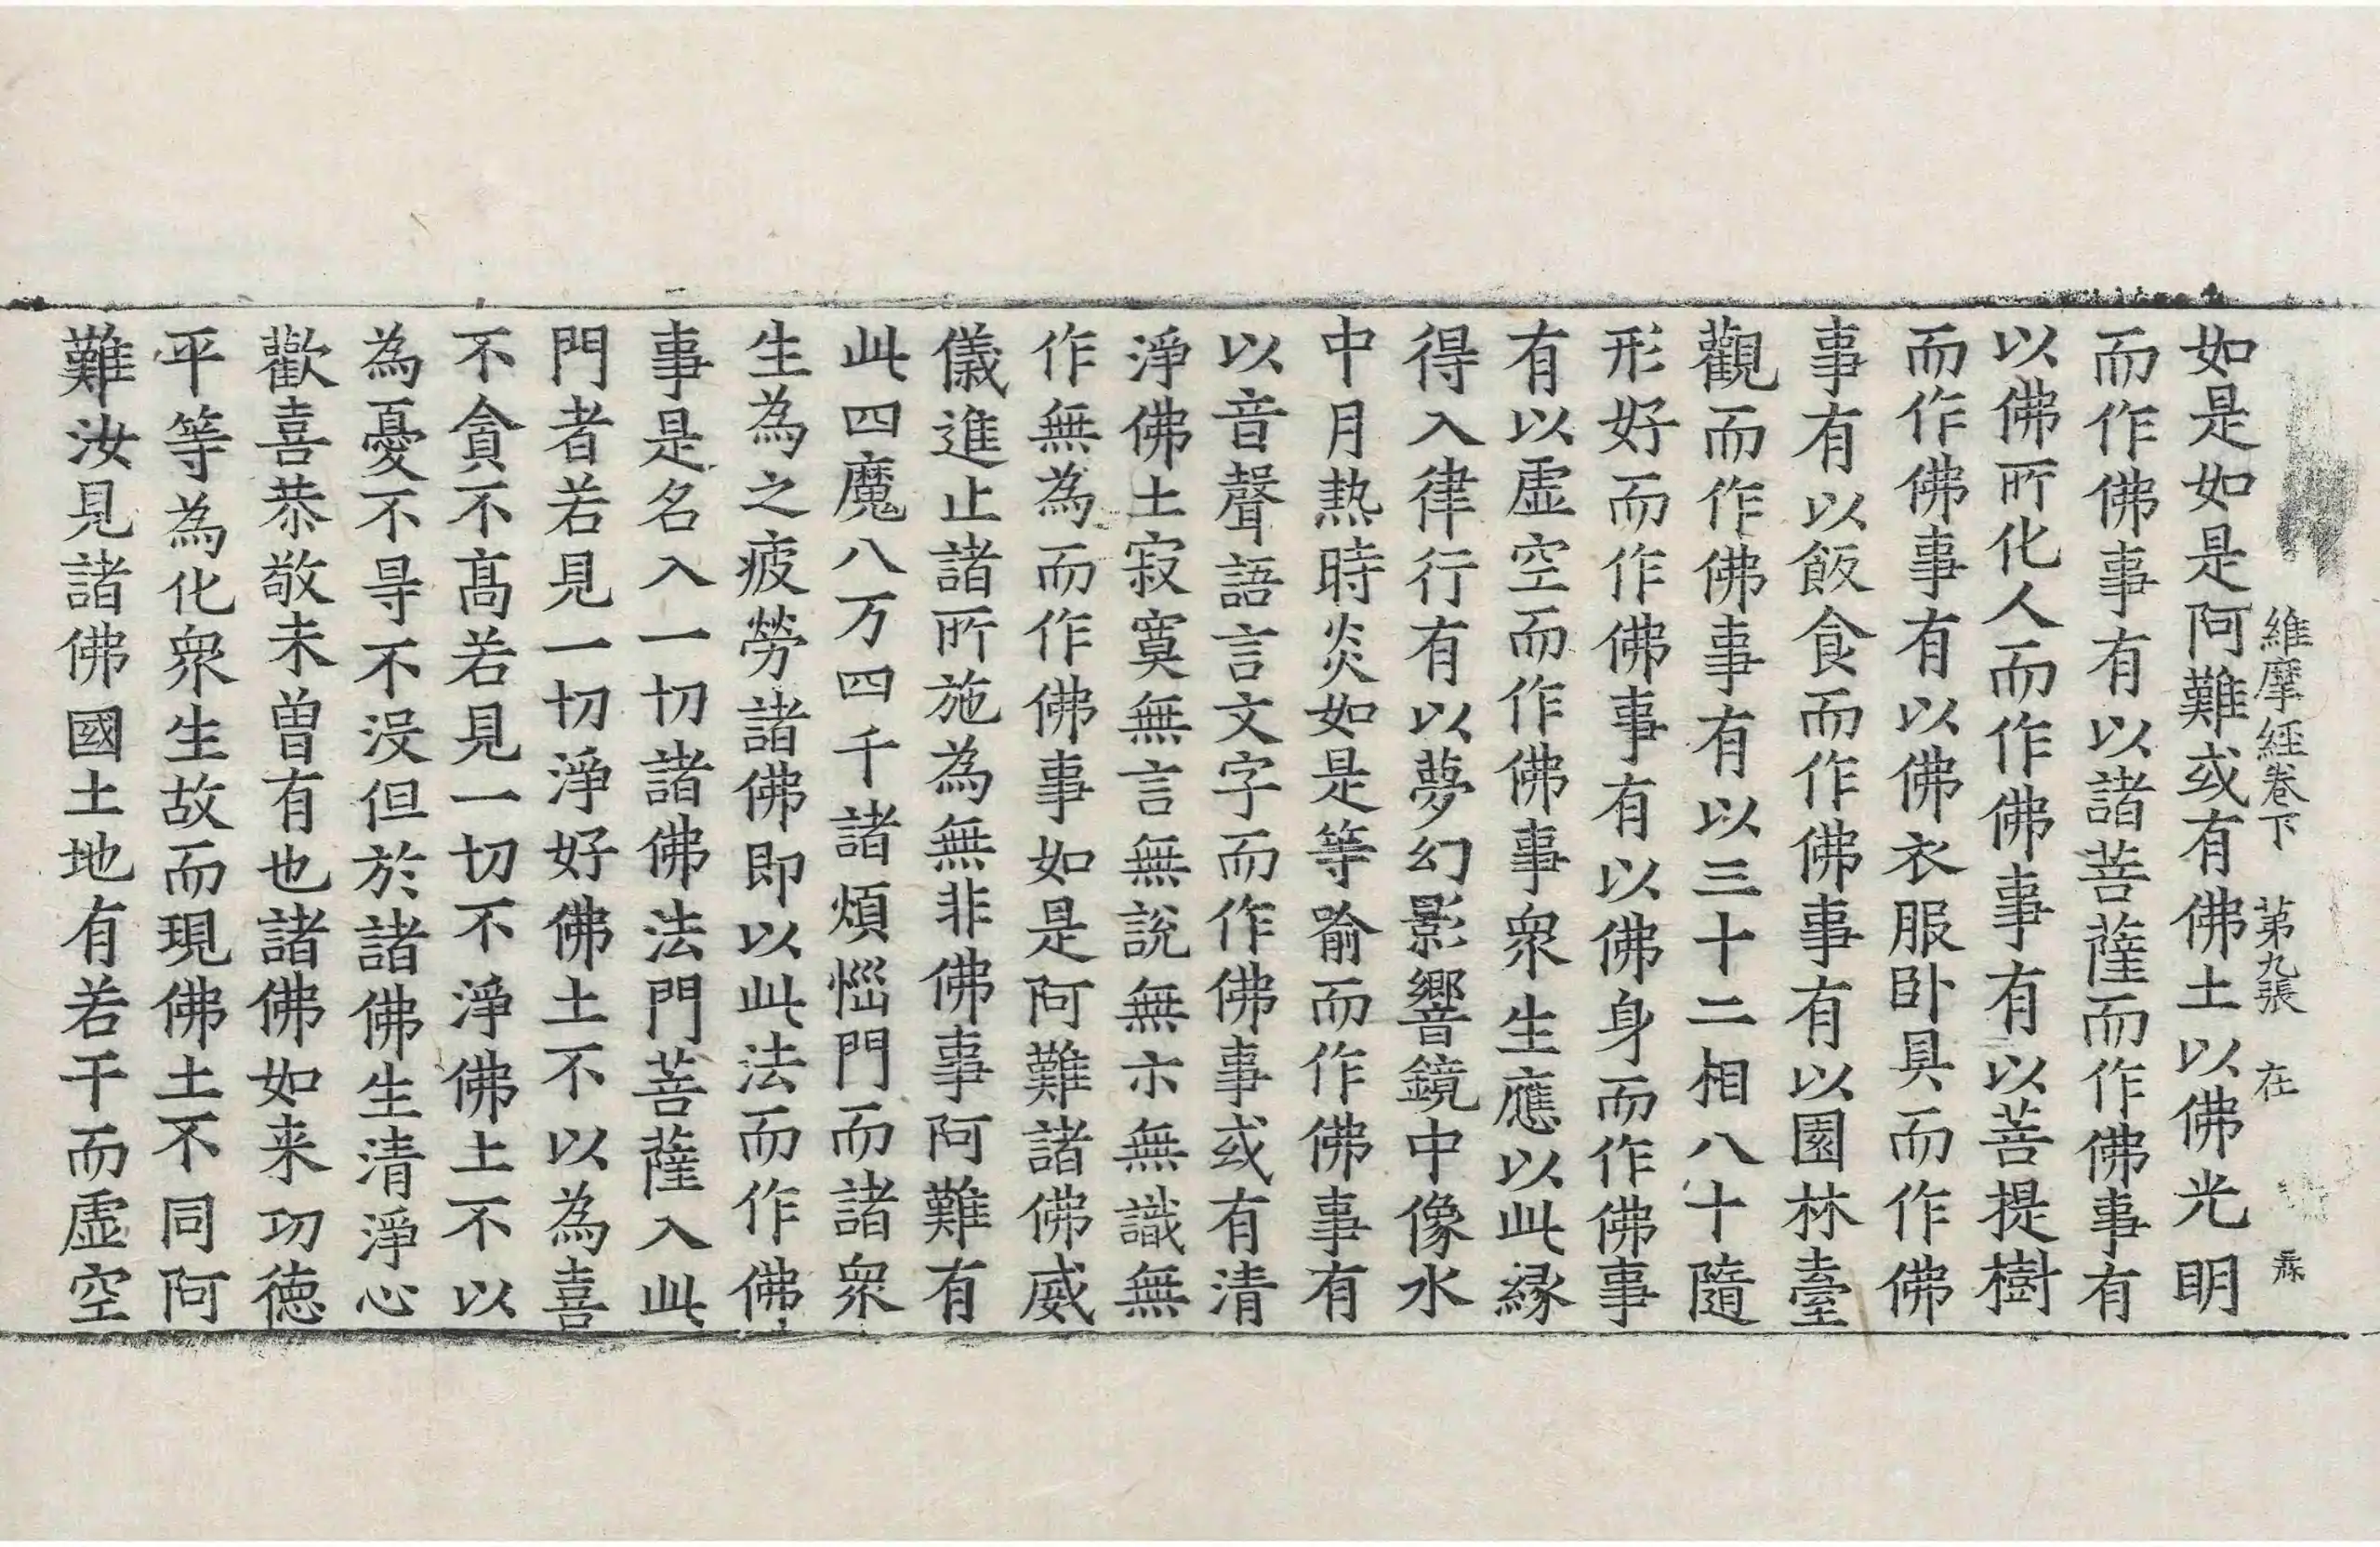 維摩経卷下 第九張 在
如是如是阿難或有佛土以佛光明
而作佛事有以諸菩薩而作佛事有
以佛所化人而作佛事有以菩提樹
而作佛事有以佛衣服卧具而作佛
事有以飯食而作佛事有以園林臺
觀而作佛事有以三十二相八十隨
形好而作佛事有以佛身而作佛事
有以虛空而作佛事衆生應以此緣
得入律行有以夢幻影響鏡中像水
中月熱時炎如是等喻而作佛事有
以音聲語言文字而作佛事或有清
淨佛土寂寞無言無說無示無識無
作無為而作佛事如是阿難諸佛威
儀進止諸所施為無非佛事阿難有
此四魔八万四千諸煩惱門而諸衆
生為之疲勞諸佛即以此法而作佛
事是名入一切諸佛法門菩薩入此
門者若見一切淨好佛土不以為喜
不貪不髙若見一切不淨佛上不以
為憂不㝵不没但於諸佛生清淨心
歡喜恭敬未曾有也諸佛如来功徳
平等為化衆生故而現佛土不同阿
難汝見諸佛國土地有若干而虛空